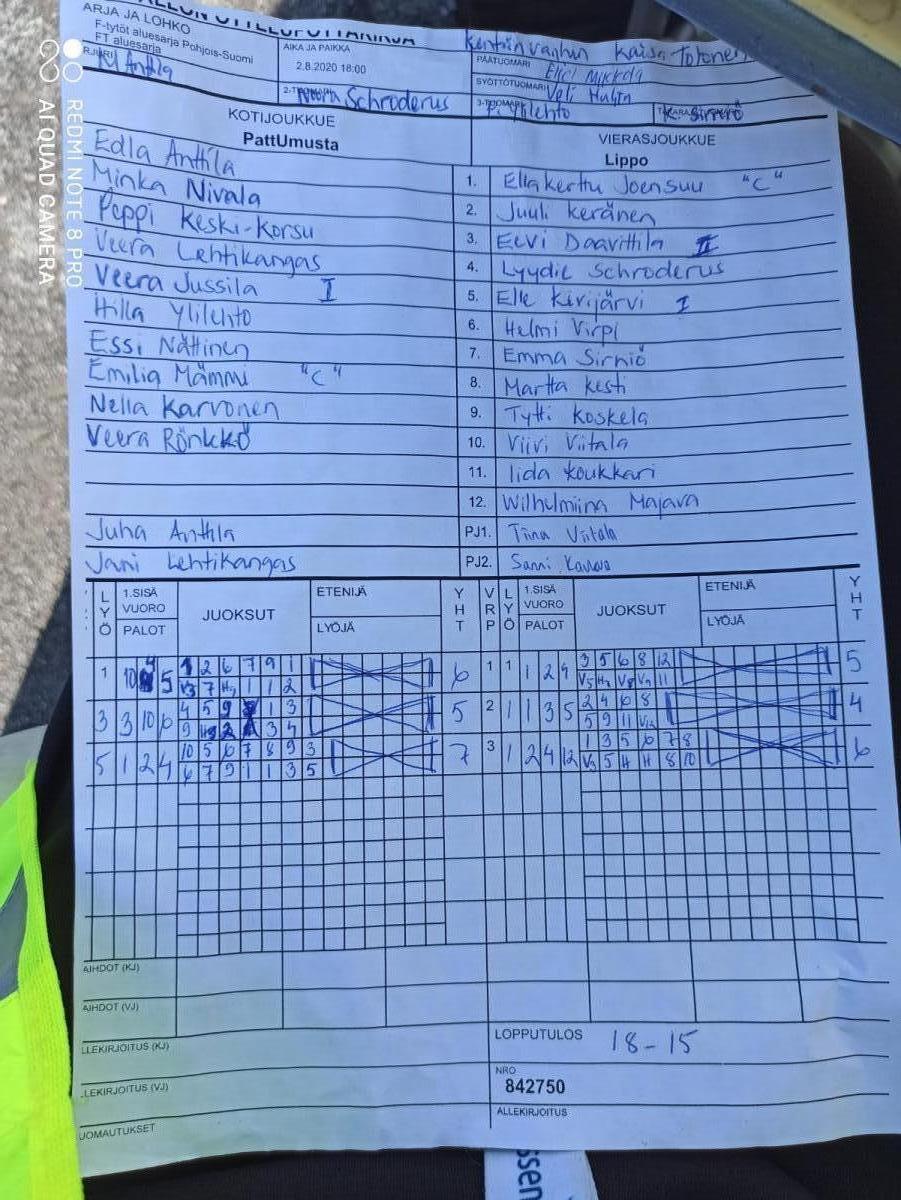 ALLON OTTELUPÖYTÄKIRJA
ARJA JA LOHKO
F-tytöt aluesarja Pohjois-Suomi
FT aluesarja
RJURI
M Anttila
AIKA JA PAIKKA
2.8.2020 18:00
Kentän vanhin Kaisa Tolonen
PÄÄTUOMARI Elli Mikkola
SYÖTTÖTUOMARI Veli Huhta
2-TUOMARI Noora Schroderus
3-TUOMARI P. Ylilehto
TAKARAJATUOMARI K. Sirniö
KOTIJOUKKUE
PattUmusta
VIERASJOUKKUE
Lippo
Edla Anttila 1. Ellakerttu Joensuu "C"
Minka Nivala 2. Juuli Keränen
Peppi Keski-Korsu 3. Eevi Daavittila II
Veera Lehtikangas 4. Lyydie Schroderus
Veera Jussila I 5. Elle Kivijärvi I
Hilla Ylilehto 6. Helmi Virpi
Essi Nättinen 7. Emma Sirniö
Emilia Mämmi "C" 8. Martta Kesti
Nella Karvonen 9. Tytti Koskela
Veera Rönkkö 10. Viivi Viitala
11. Iida Koukkari
12. Wilhelmiina Majava
Juha Anttila PJ1. Tiina Viitala
Jani Lehtikangas PJ2. Sanni
LYÖ 1.SISÄ VUORO PALOT JUOKSUT ETENIJÄ LYÖJÄ YHT VRP LYÖ 1.SISÄ VUORO PALOT JUOKSUT ETENIJÄ LYÖJÄ YHT
1 2 6 7 9 1 3 5 6 8 12
1 10 5 6 1 1 1 2 4 5
V3 7 H9 1 1 2 V5 H2 V8 V9 11
4 5 9 1 3 2 4 6 8
3 3 10 6 5 2 1 1 3 5 4
9 2 3 4 5 9 11 V12
10 5 6 7 8 9 3 1 3 5 6 7 8
5 1 2 4 7 3 1 2 4 12 6
6 7 9 1 1 3 5 V3 5 H H 8 10
AIHDOT (KJ)
AIHDOT (VJ)
LLEKIRJOITUS (KJ)
LOPPUTULOS 18-15
LEKIRJOITUS (VJ)
NRO
842750
UOMAUTUKSET
ALLEKIRJOITUS
REDMI NOTE 8 PRO
AI QUAD CAMERA
ssen